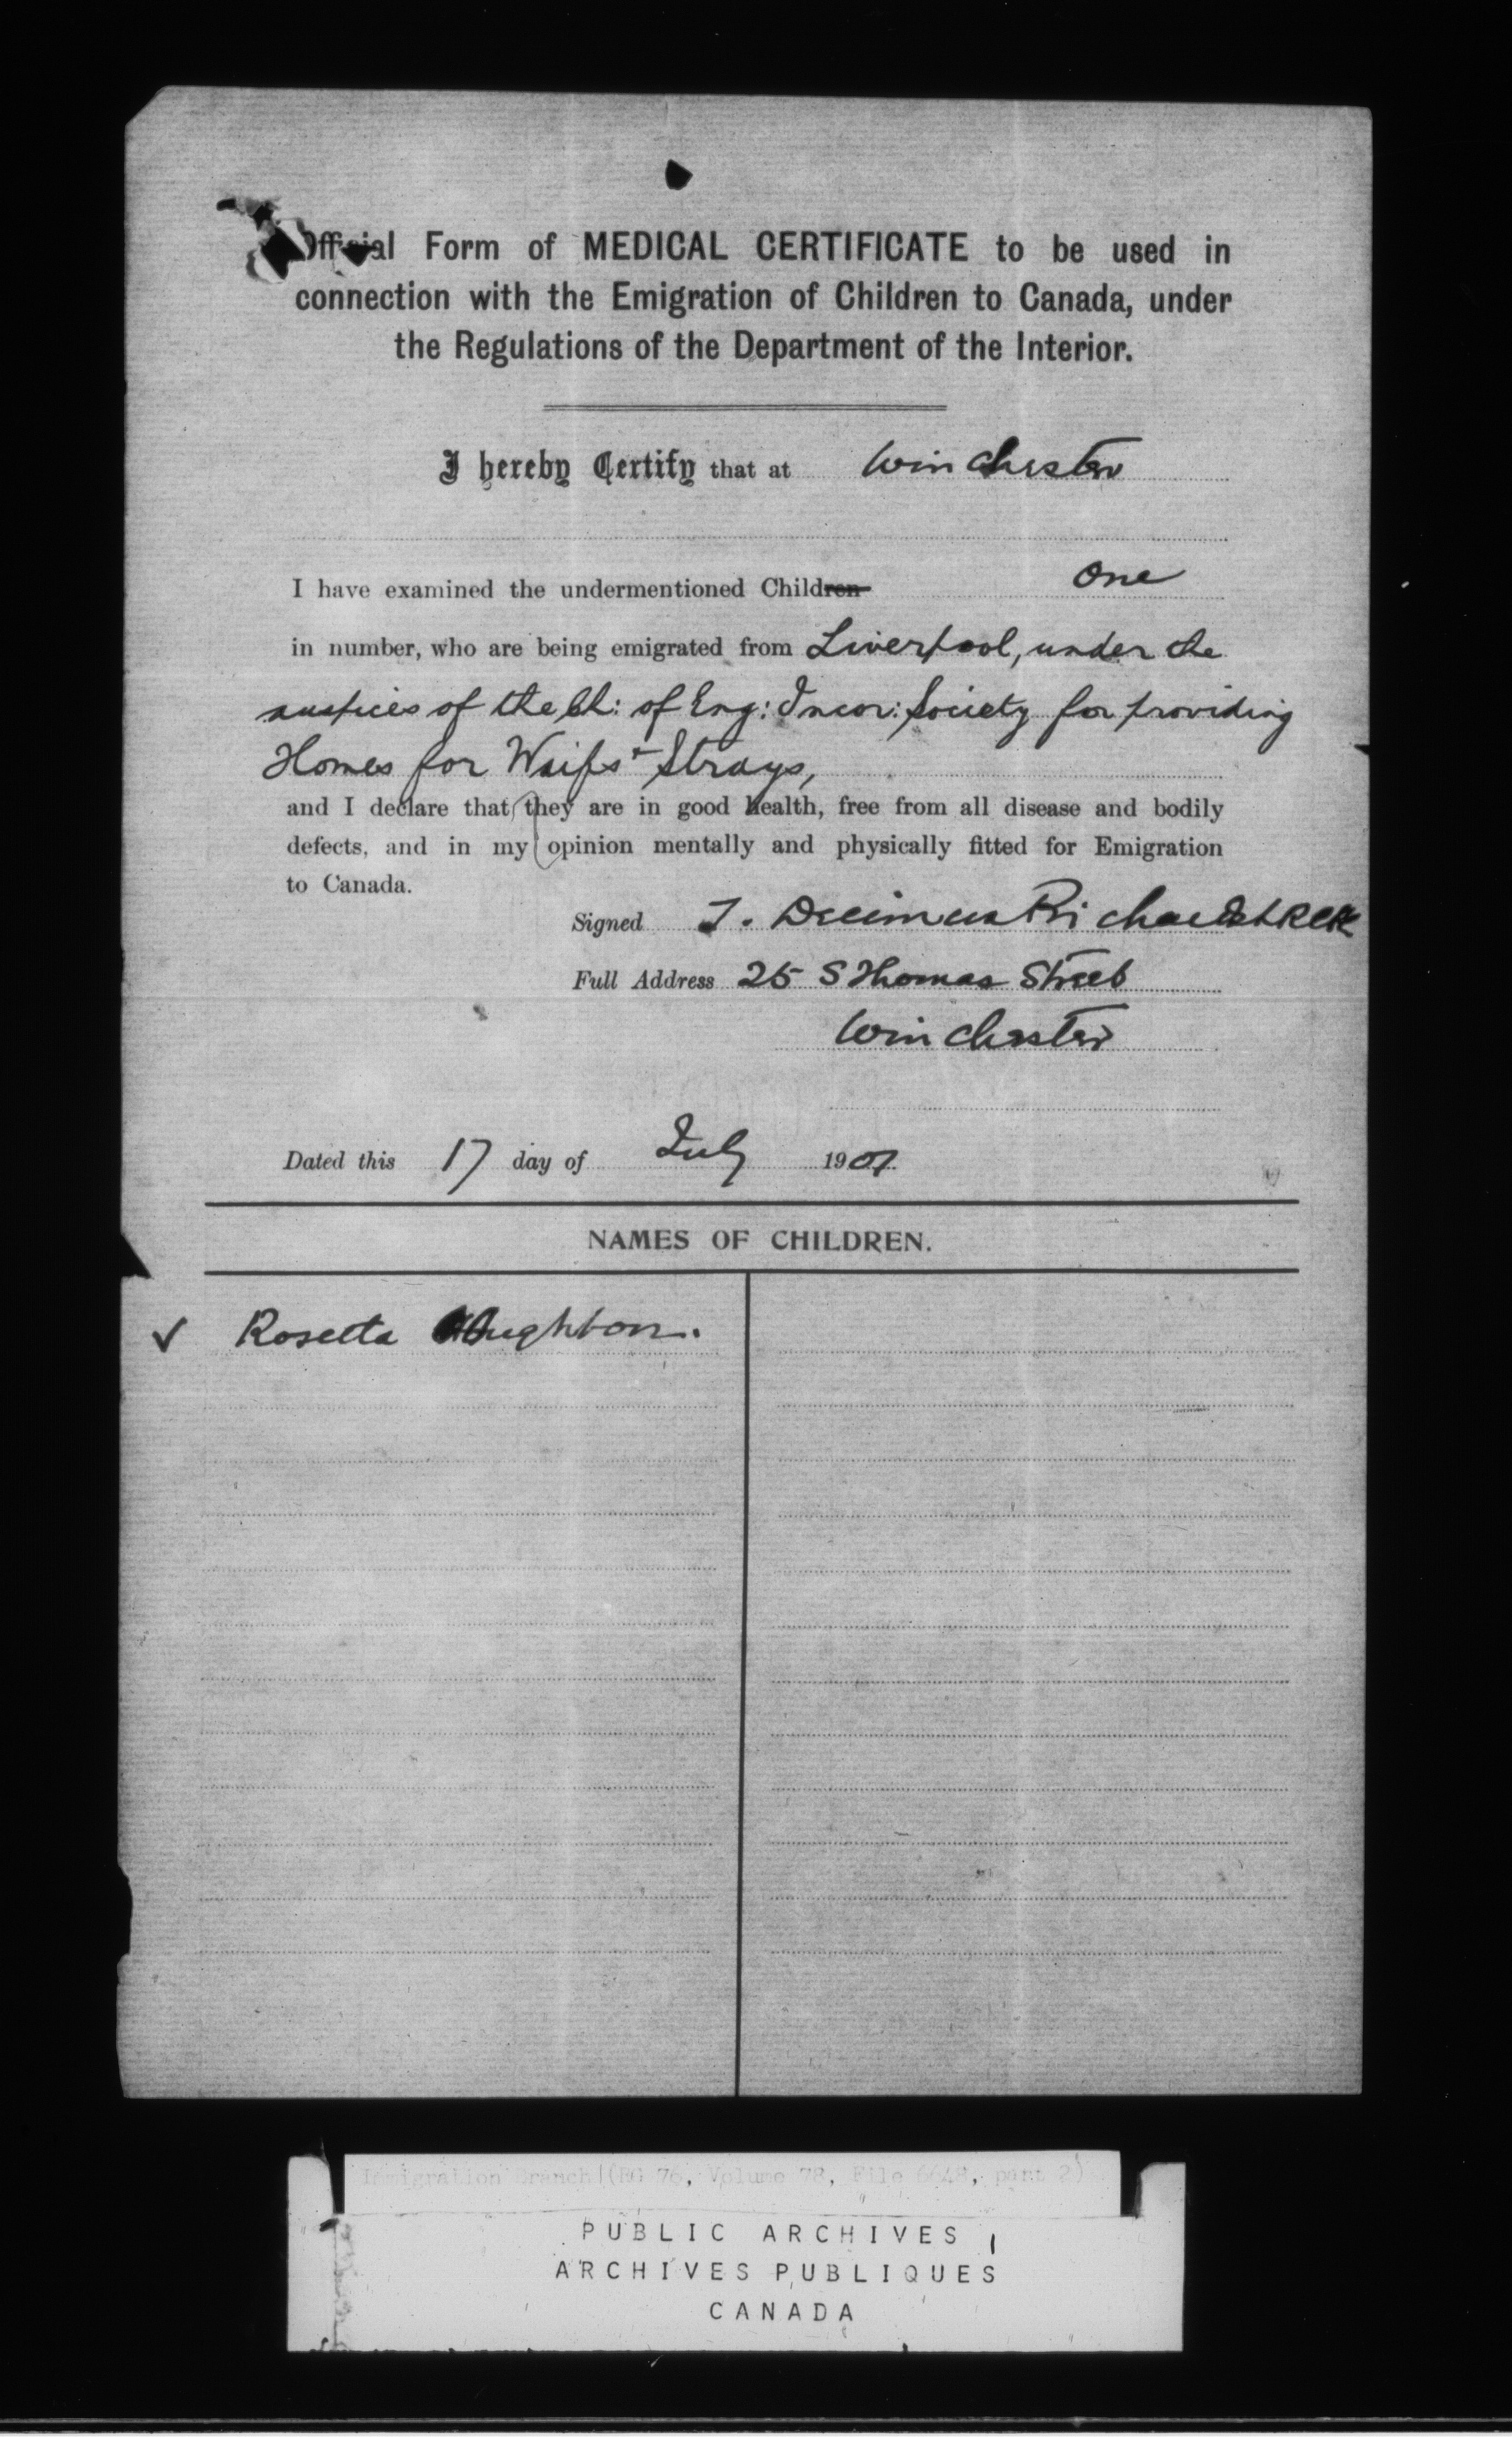 Official Form of MEDICAL CERTIFICATE to be used in
connection with the Emigration of Children to Canada, under
the Regulations of the Department of the Interior.
I hereby Certify that at Winchester
I have examined the undermentioned Children One
in number, who are being emigrated from Liverpool, under the
auspices of the Ch: of Eng: Incor: Society for providing
Homes for Waifs & Strays,
and I declare that they are in good health, free from all disease and bodily
defects, and in my opinion mentally and physically fitted for Emigration
to Canada.
Signed T. Decimus Richards
Full Address 25 S Thomas Street
Winchester
Dated this 17 day of July 1907.
NAMES OF CHILDREN.
✓ Rosetta
Immigration Branch (RG 76, Volume 78, File 6648, part 2)
PUBLIC ARCHIVES
ARCHIVES PUBLIQUES
CANADA